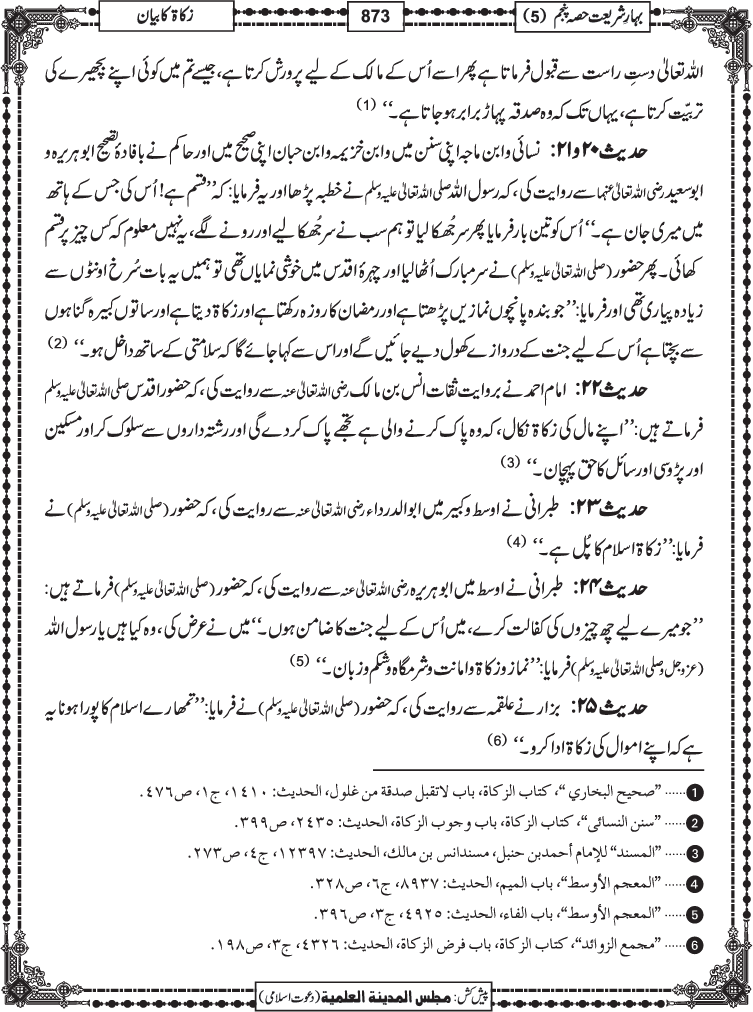 بہارِ شریعت حصہ پنجم (5)
873
زکاۃ کا بیان
اللہ تعالیٰ دستِ راست سے قبول فرماتا ہے پھر اسے اُس کے مالک کے لیے پرورش کرتا ہے، جیسے تم میں کوئی اپنے بچھیرے کی
تربیّت کرتا ہے، یہاں تک کہ وہ صدقہ پہاڑ برابر ہو جاتا ہے۔‘‘ (1)
حدیث ۲۰ و ۲۱: نسائی و ابن ماجہ اپنی سنن میں و ابن خزیمہ و ابن حبان اپنی صحیح میں اور حاکم نے بافادۂ تصحیح ابوہریرہ و
ابوسعید رضی اللہ تعالیٰ عنہما سے روایت کی، کہ رسول اللہ صلی اللہ تعالیٰ علیہ وسلم نے خطبہ پڑھا اور یہ فرمایا: کہ ’’قسم ہے! اُس کی جس کے ہاتھ
میں میری جان ہے۔‘‘ اُس کو تین بار فرمایا پھر سر جُھکا لیا تو ہم سب نے سر جُھکا لیے اور رونے لگے، یہ نہیں معلوم کہ کس چیز پر قسم
کھائی۔ پھر حضور (صلی اللہ تعالیٰ علیہ وسلم) نے سر مبارک اُٹھا لیا اور چہرۂ اقدس میں خوشی نمایاں تھی تو ہمیں یہ بات سُرخ اونٹوں سے
زیادہ پیاری تھی اور فرمایا: ’’جو بندہ پانچوں نمازیں پڑھتا ہے اور رمضان کا روزہ رکھتا ہے اور زکاۃ دیتا ہے اور ساتوں کبیرہ گناہوں
سے بچتا ہے اُس کے لیے جنت کے دروازے کھول دیے جائیں گے اور اس سے کہا جائے گا کہ سلامتی کے ساتھ داخل ہو۔‘‘ (2)
حدیث ۲۲: امام احمد نے بروایت ثقات انس بن مالک رضی اللہ تعالیٰ عنہ سے روایت کی، کہ حضور اقدس صلی اللہ تعالیٰ علیہ وسلم
فرماتے ہیں: ’’اپنے مال کی زکاۃ نکال، کہ وہ پاک کرنے والی ہے تجھے پاک کر دے گی اور رشتہ داروں سے سلوک کر اور مسکین
اور پڑوسی اور سائل کا حق پہچان۔‘‘ (3)
حدیث ۲۳: طبرانی نے اوسط و کبیر میں ابوالدرداء رضی اللہ تعالیٰ عنہ سے روایت کی، کہ حضور (صلی اللہ تعالیٰ علیہ وسلم) نے
فرمایا: ’’زکاۃ اسلام کا پُل ہے۔‘‘ (4)
حدیث ۲۴: طبرانی نے اوسط میں ابوہریرہ رضی اللہ تعالیٰ عنہ سے روایت کی، کہ حضور (صلی اللہ تعالیٰ علیہ وسلم) فرماتے ہیں:
’’جو میرے لیے چھ چیزوں کی کفالت کرے، میں اُس کے لیے جنت کا ضامن ہوں۔‘‘ میں نے عرض کی، وہ کیا ہیں یا رسول اللہ
(عزوجل و صلی اللہ تعالیٰ علیہ وسلم) فرمایا: ’’نماز و زکاۃ و امانت و شرمگاہ و شکم و زبان۔‘‘ (5)
حدیث ۲۵: بزار نے علقمہ سے روایت کی، کہ حضور (صلی اللہ تعالیٰ علیہ وسلم) نے فرمایا: ’’تمھارے اسلام کا پورا ہونا یہ
ہے کہ اپنے اموال کی زکاۃ ادا کرو۔‘‘ (6)
1 ...... ”صحیح البخاري“، کتاب الزکاۃ، باب لاتقبل صدقۃ من غلول، الحدیث: ١٤١٠، ج١، ص٤٧٦.
2 ...... ”سنن النسائی“، کتاب الزکاۃ، باب وجوب الزکاۃ، الحدیث: ٢٤٣٥، ص٣٩٩.
3 ...... ”المسند“ للإمام أحمد بن حنبل، مسند انس بن مالک، الحدیث: ١٢٣٩٧، ج٤، ص٢٧٣.
4 ...... ”المعجم الأوسط“، باب المیم، الحدیث: ٨٩٣٧، ج٦، ص٣٢٨.
5 ...... ”المعجم الأوسط“، باب الفاء، الحدیث: ٤٩٢٥، ج٣، ص٣٩٦.
6 ...... ”مجمع الزوائد“، کتاب الزکاۃ، باب فرض الزکاۃ، الحدیث: ٤٣٢٦، ج٣، ص١٩٨.
پیش کش: مجلس المدینۃ العلمیۃ (دعوت اسلامی)